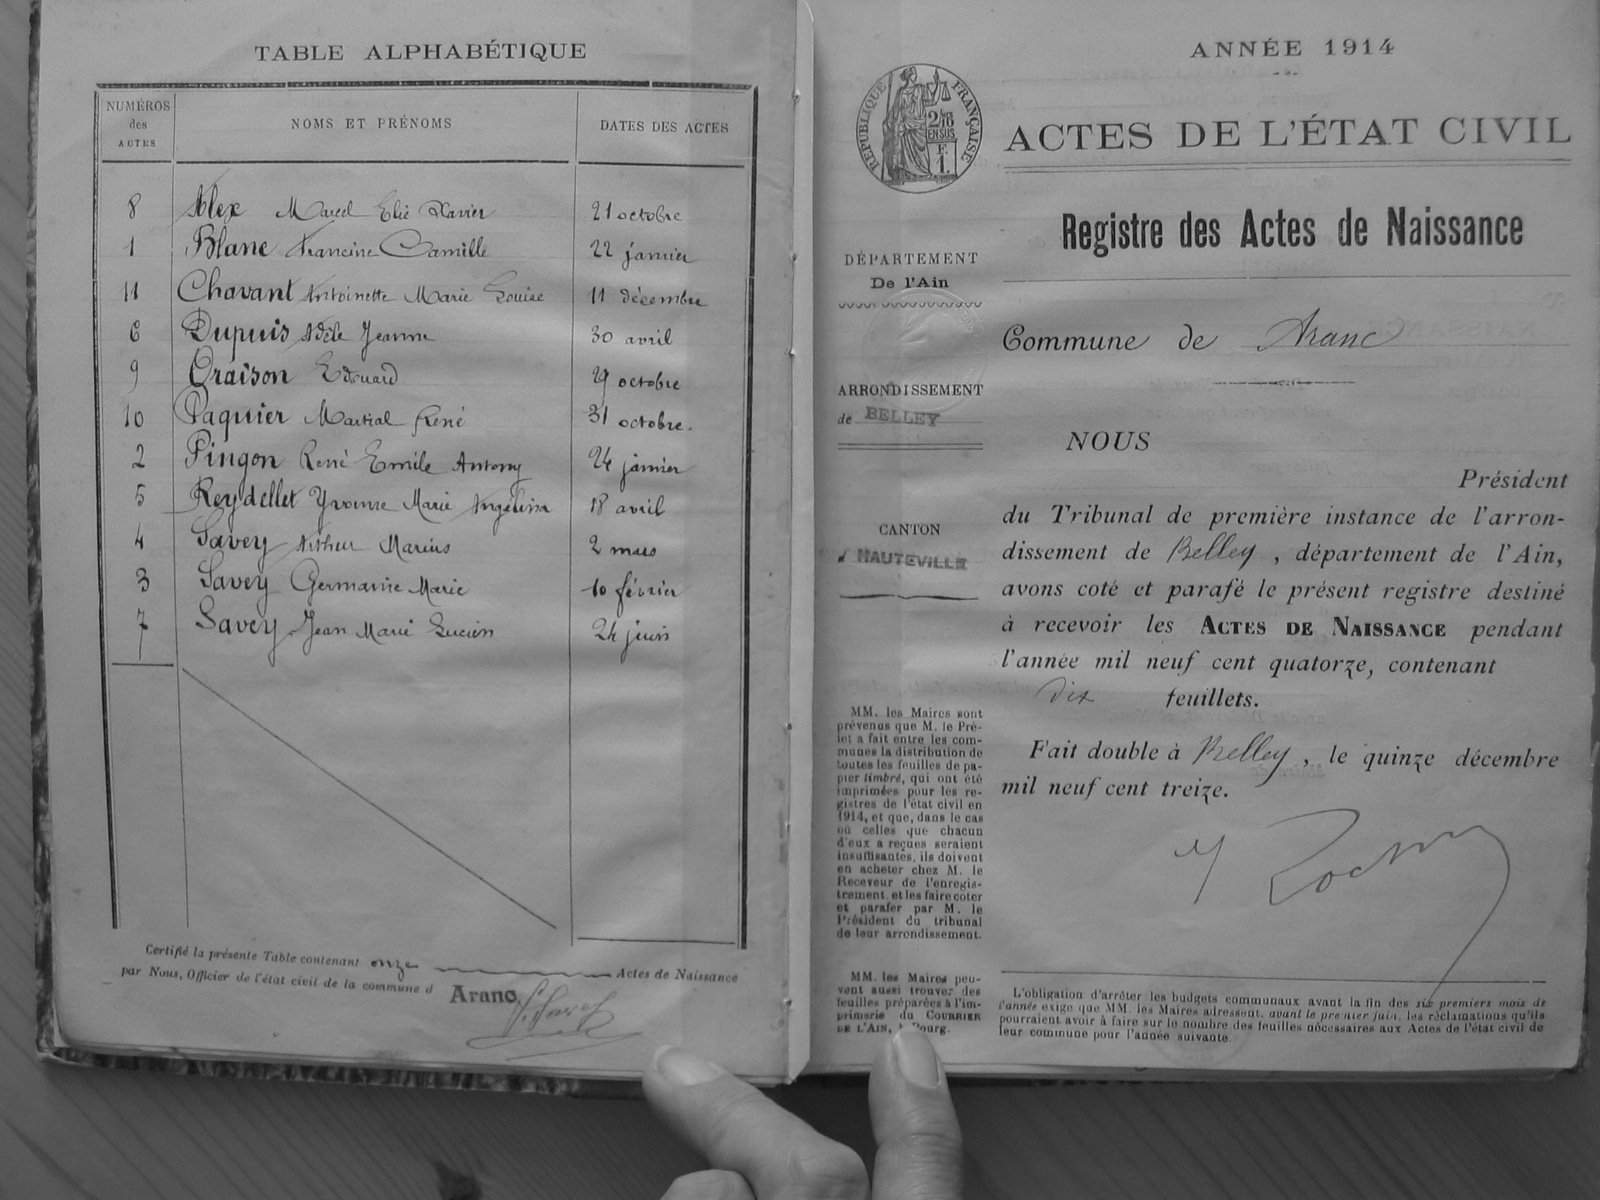 TABLE ALPHABÉTIQUE
NUMÉROS des ACTES
NOMS ET PRÉNOMS
DATES DES ACTES
8 Alex Marcel Elie Xavier 21 octobre
1 Blanc Francine Camille 22 janvier
11 Chavant Antoinette Marie Louise 11 décembre
6 Dupuis Adèle Jeanne 30 avril
9 Oraison Edouard 29 octobre
10 Paquier Martial René 31 octobre.
2 Pingon René Emile Antony 24 janvier
5 Reydellet Yvonne Marie Angelina 18 avril
4 Savey Arthur Marius 2 mars
3 Savey Germaine Marie 10 février
7 Savey Jean Marie Lucien 24 juin
Certifié la présente Table contenant onze Actes de Naissance
par Nous, Officier de l'état civil de la commune d Aranc
ANNÉE 1914
RÉPUBLIQUE FRANÇAISE
2/10
EN SUS
F.
1.
ACTES DE L'ÉTAT CIVIL
Registre des Actes de Naissance
DÉPARTEMENT
De l'Ain
ARRONDISSEMENT
de BELLEY
CANTON
HAUTEVILLE
MM. les Maires sont
prévenus que M. le Pré-
fet a fait entre les com-
munes la distribution de
toutes les feuilles de pa-
pier timbré, qui ont été
imprimées pour les re-
gistres de l'état civil en
1914, et que, dans le cas
où celles que chacun
d'eux a reçues seraient
insuffisantes, ils doivent
en acheter chez M. le
Receveur de l'enregis-
trement, et les faire coter
et parafer par M. le
Président du tribunal
de leur arrondissement.
MM. les Maires peu-
vent aussi trouver des
feuilles préparées à l'im-
primerie du COURRIER
DE L'AIN, à Bourg.
Commune de Aranc
NOUS
Président
du Tribunal de première instance de l'arron-
dissement de Belley, département de l'Ain,
avons coté et parafé le présent registre destiné
à recevoir les ACTES DE NAISSANCE pendant
l'année mil neuf cent quatorze, contenant
dix feuillets.
Fait double à Belley, le quinze décembre
mil neuf cent treize.
L'obligation d'arrêter les budgets communaux avant la fin des six premiers mois de
l'année exige que MM. les Maires adressent, avant le premier juin, les réclamations qu'ils
pourraient avoir à faire sur le nombre des feuilles nécessaires aux Actes de l'état civil de
leur commune pour l'année suivante.